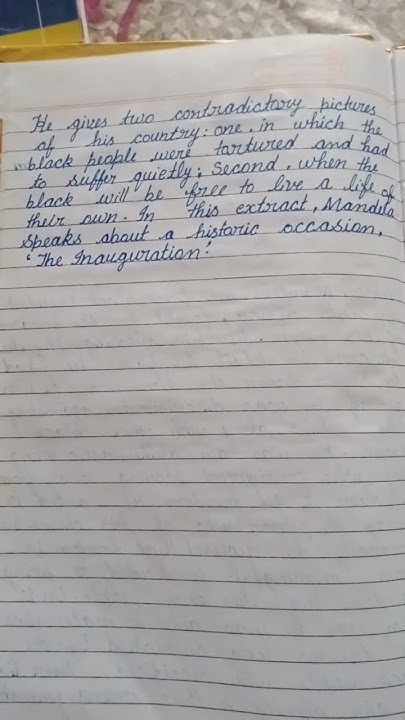 He gives two contradictory pictures
of his country: one, in which the
black people were tortured and had
to suffer quietly; Second, when the
black will be free to live a life of
their own. In this extract, Mandela
speaks about a historic occasion,
'The Inauguration.'